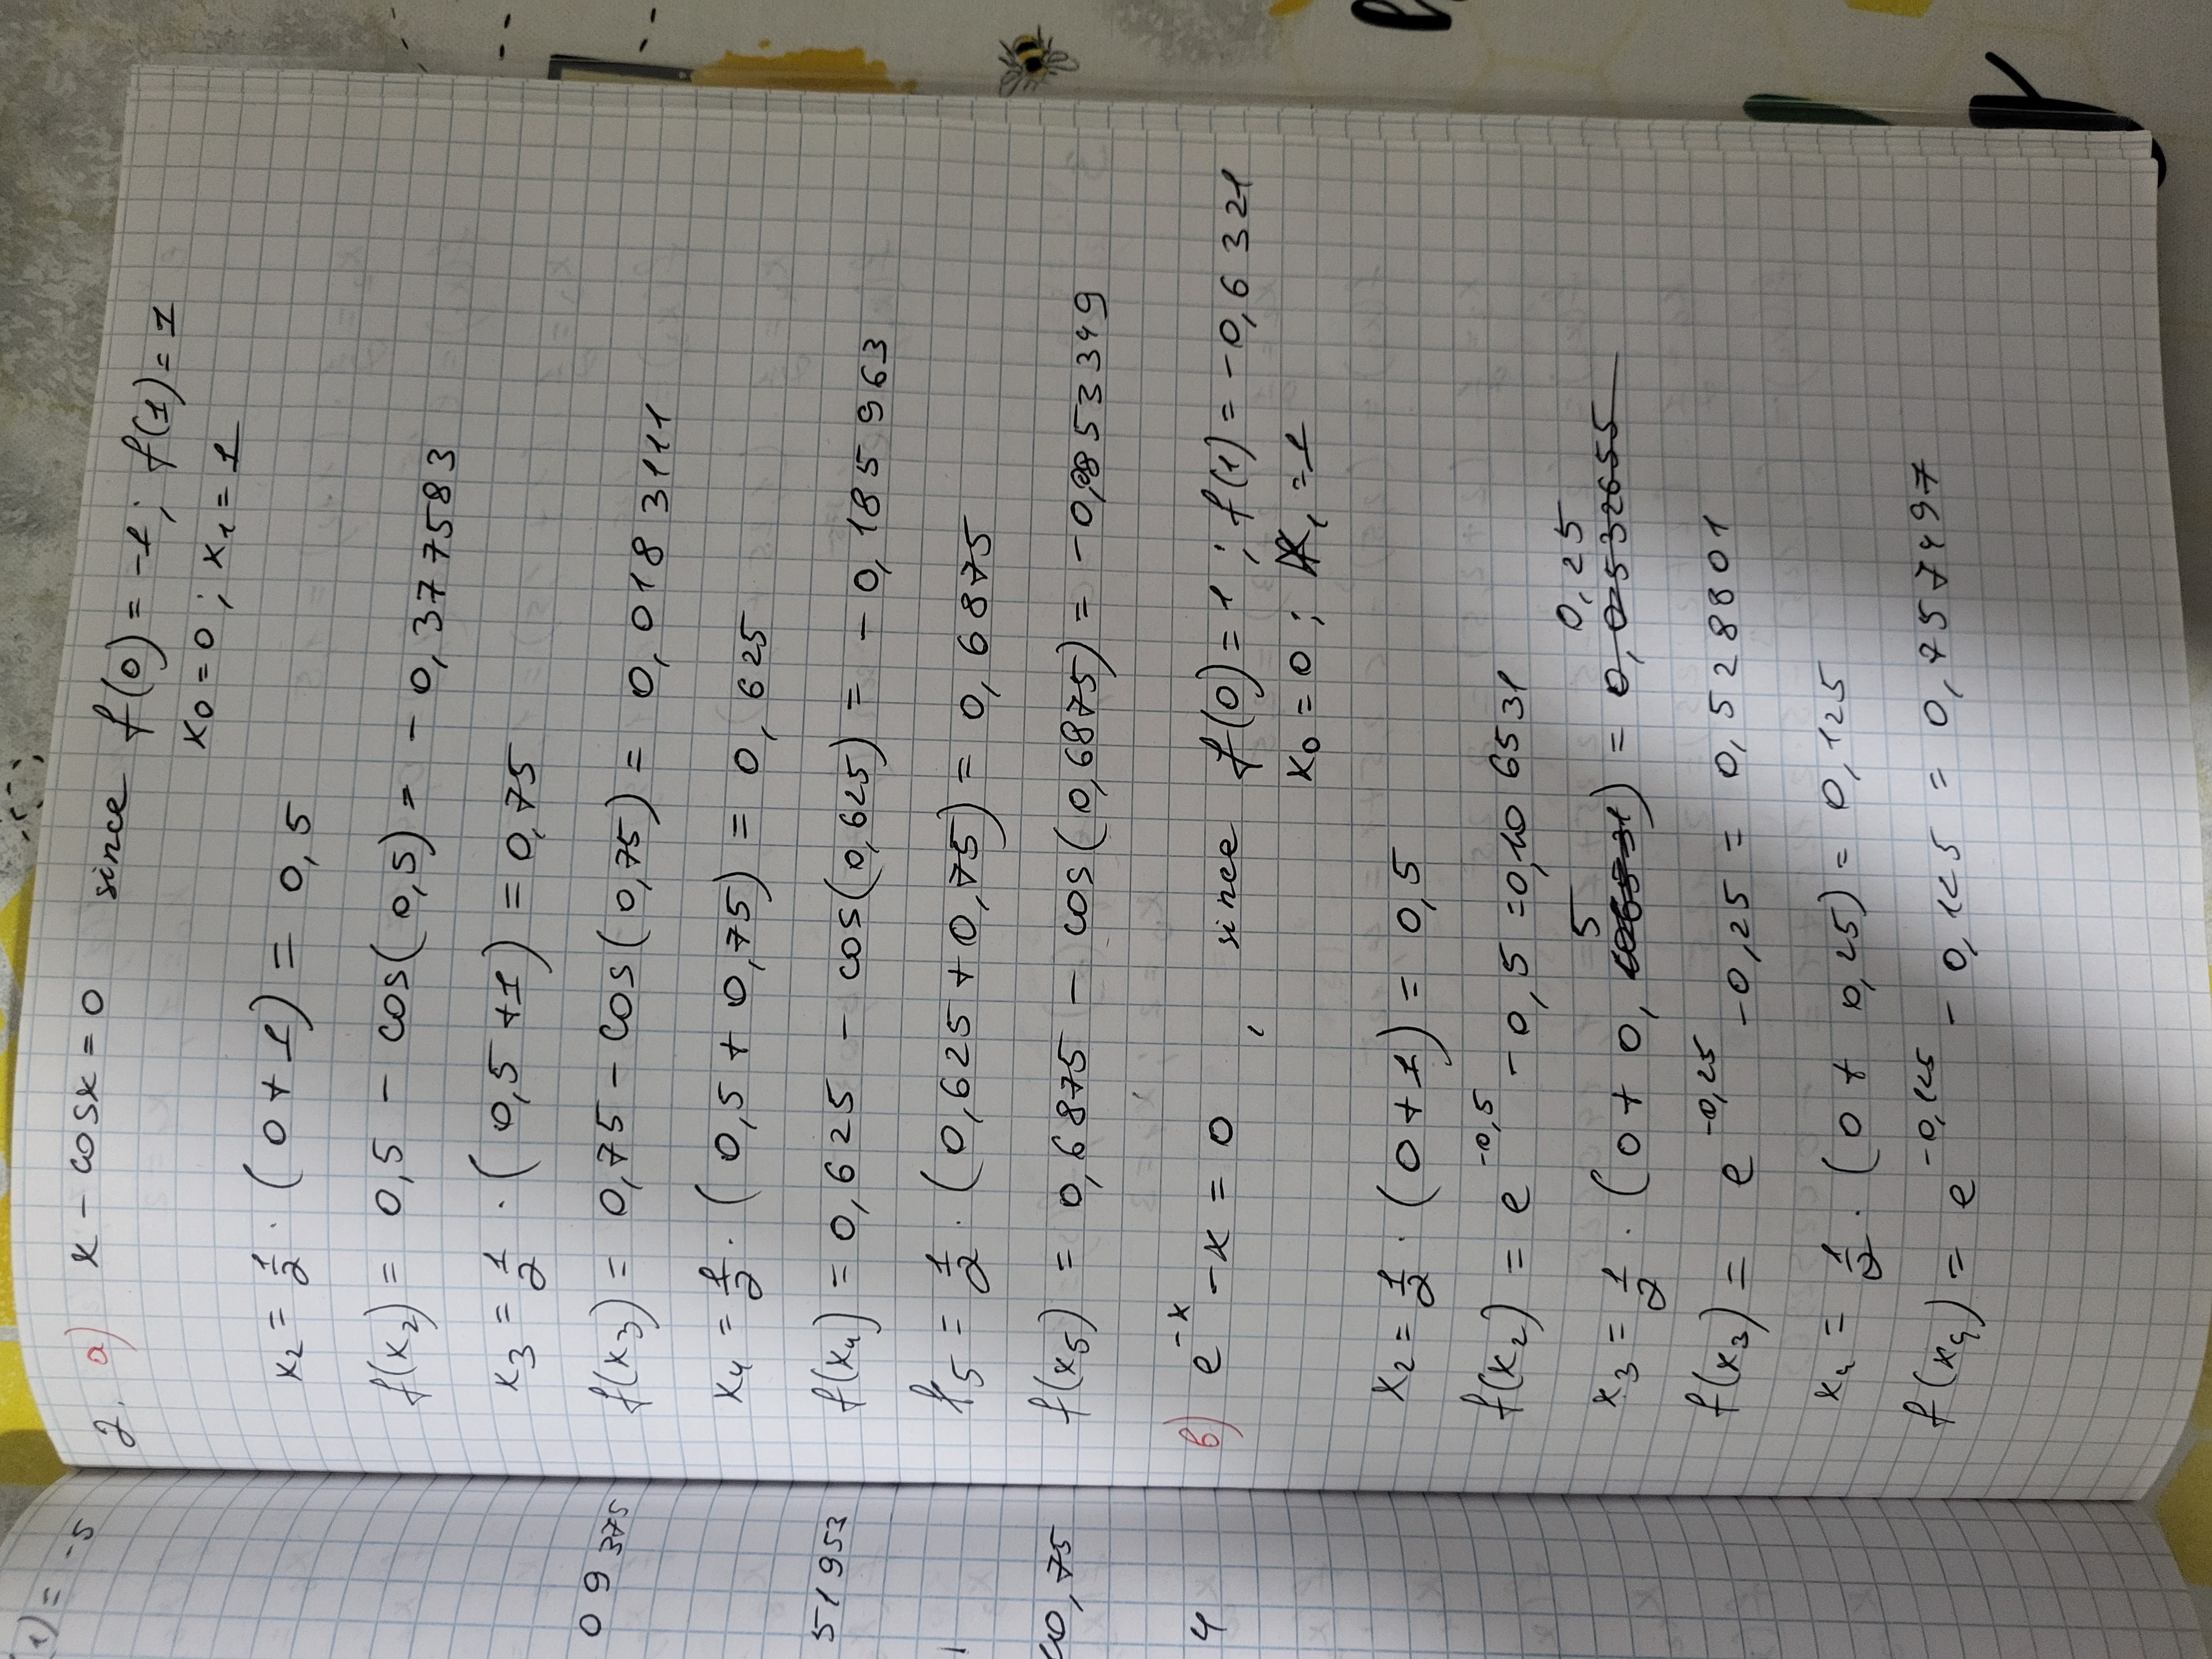 1) = -5
09375
51953
1
10,75
4
2. a) x - cosx = 0 since f(0) = -1; f(1) = 1
x0 = 0; x1 = 1
x2 = 1/2 · (0 + 1) = 0,5
f(x2) = 0,5 - cos(0,5) = - 0,377583
x3 = 1/2 · (0,5 + 1) = 0,75
f(x3) = 0,75 - cos(0,75) = 0,0183111
x4 = 1/2 · (0,5 + 0,75) = 0,625
f(x4) = 0,625 - cos(0,625) = - 0,185963
f5 = 1/2 · (0,625 + 0,75) = 0,6875
f(x5) = 0,6875 - cos(0,6875) = -0,0853349
b) e^-x - x = 0, since f(0) = 1; f(1) = -0,6321
x0 = 0; x1 = 1
x2 = 1/2 · (0 + 1) = 0,5
f(x2) = e^-0,5 - 0,5 = 0,106531
x3 = 1/2 · (0 + 0,5) = 0,25
f(x3) = e^-0,25 - 0,25 = 0,528801
x4 = 1/2 · (0 + 0,25) = 0,125
f(x4) = e^-0,125 - 0,125 = 0,757497